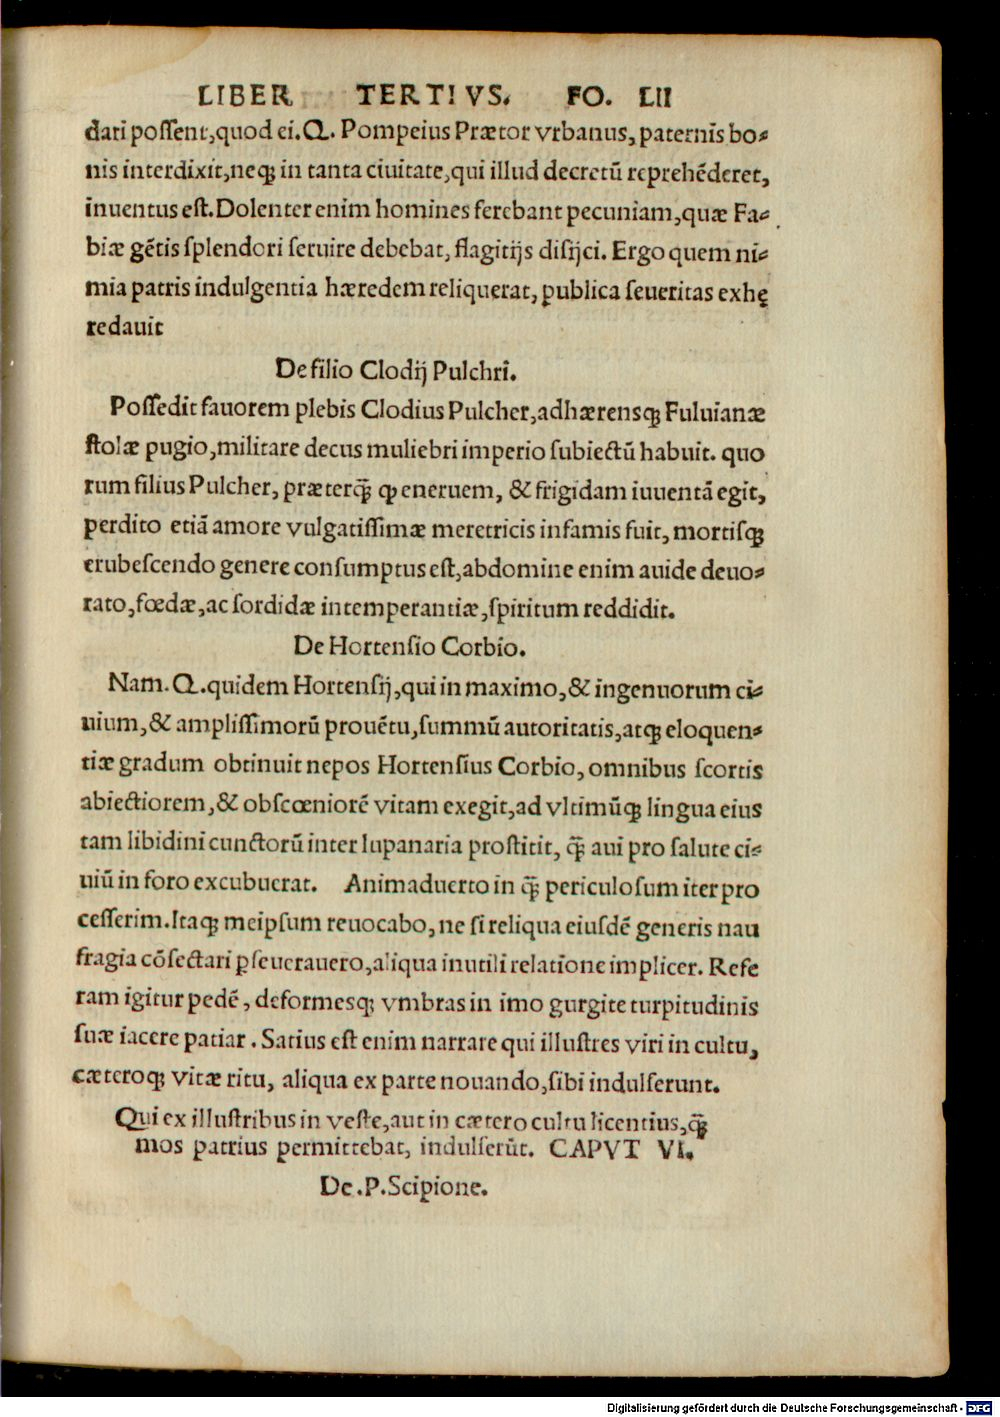 LIBER TERTIVS. FO. LII
dari poſſent,quod ei.Q. Pompeius Prætor vrbanus,paternis bo⸗
nis interdixit,neqꝫ in tanta ciuitate,qui illud decretũ reprehẽderet,
inuentus eſt.Dolenter enim homines ferebant pecuniam,quæ Fa⸗
biæ gẽtis ſplendori ſeruire debebat, flagitijs diſijci. Ergo quem ni⸗
mia patris indulgentia hæredem reliquerat, ꝑublica ſeueritas exhę
redauit
De filio Clodij Pulchri.
Poſſedit fauorem plebis Clodius Pulcher,adhærensqꝫ Fuluianæ
ſtolæ pugio,militare decus muliebri imperio ſubiectũ habuit. quo
rum filius Pulcher, præterq̃ꝫ ꝙ eneruem, & frigidam iuuentã egit,
perdito etiã amore vulgatiſſimæ meretricis infamis fuit, mortiſqꝫ
erubeſcendo genere conſumptus eſt,abdomine enim auide deuo⸗
rato,fœdæ,ac ſordidæ intemperantiæ,ſpiritum reddidit.
De Hortenſio Corbio.
Nam. Q.quidem Hortenſij,qui in maximo,& ingenuorum ci⸗
uium,& ampliſſimorũ prouẽtu,ſummũ autoritatis,atqꝫ eloquen⸗
tiæ gradum obtinuit nepos Hortenſius Corbio, omnibus ſcortis
abiectiorem,& obſcœniorẽ vitam exegit,ad vltimũqꝫ lingua eius
tam libidini cunctorũ inter lupanaria proſtitit, q̃ꝫ aui pro ſalute ci⸗
uiũ in foro excubuerat. Animaduerto in q̃ꝫ periculoſum iter pro
ceſſerim.Itaqꝫ meipſum reuocabo, ne ſi reliqua eiuſdẽ generis nau
fragia cõſectari ꝑſeuerauero,aliqua inutili relatione implicer. Refe
ram igitur pedẽ, deformesqꝫ vmbras in imo gurgite turpitudinis
ſuæ iacere patiar. Satius eſt enim narrare qui illuſtres viri in cultu,
cæteroqꝫ vitæ ritu, aliqua ex parte nouando,ſibi indulſerunt.
Qui ex illuſtribus in veſte,aut in cætero cultu licentius,q̃ꝫ
mos patrius permittebat, indulſerũt. CAPVT VI.
De .P.Scipione.
Digitalisierung gefördert durch die Deutsche Forschungsgemeinschaft - DFG